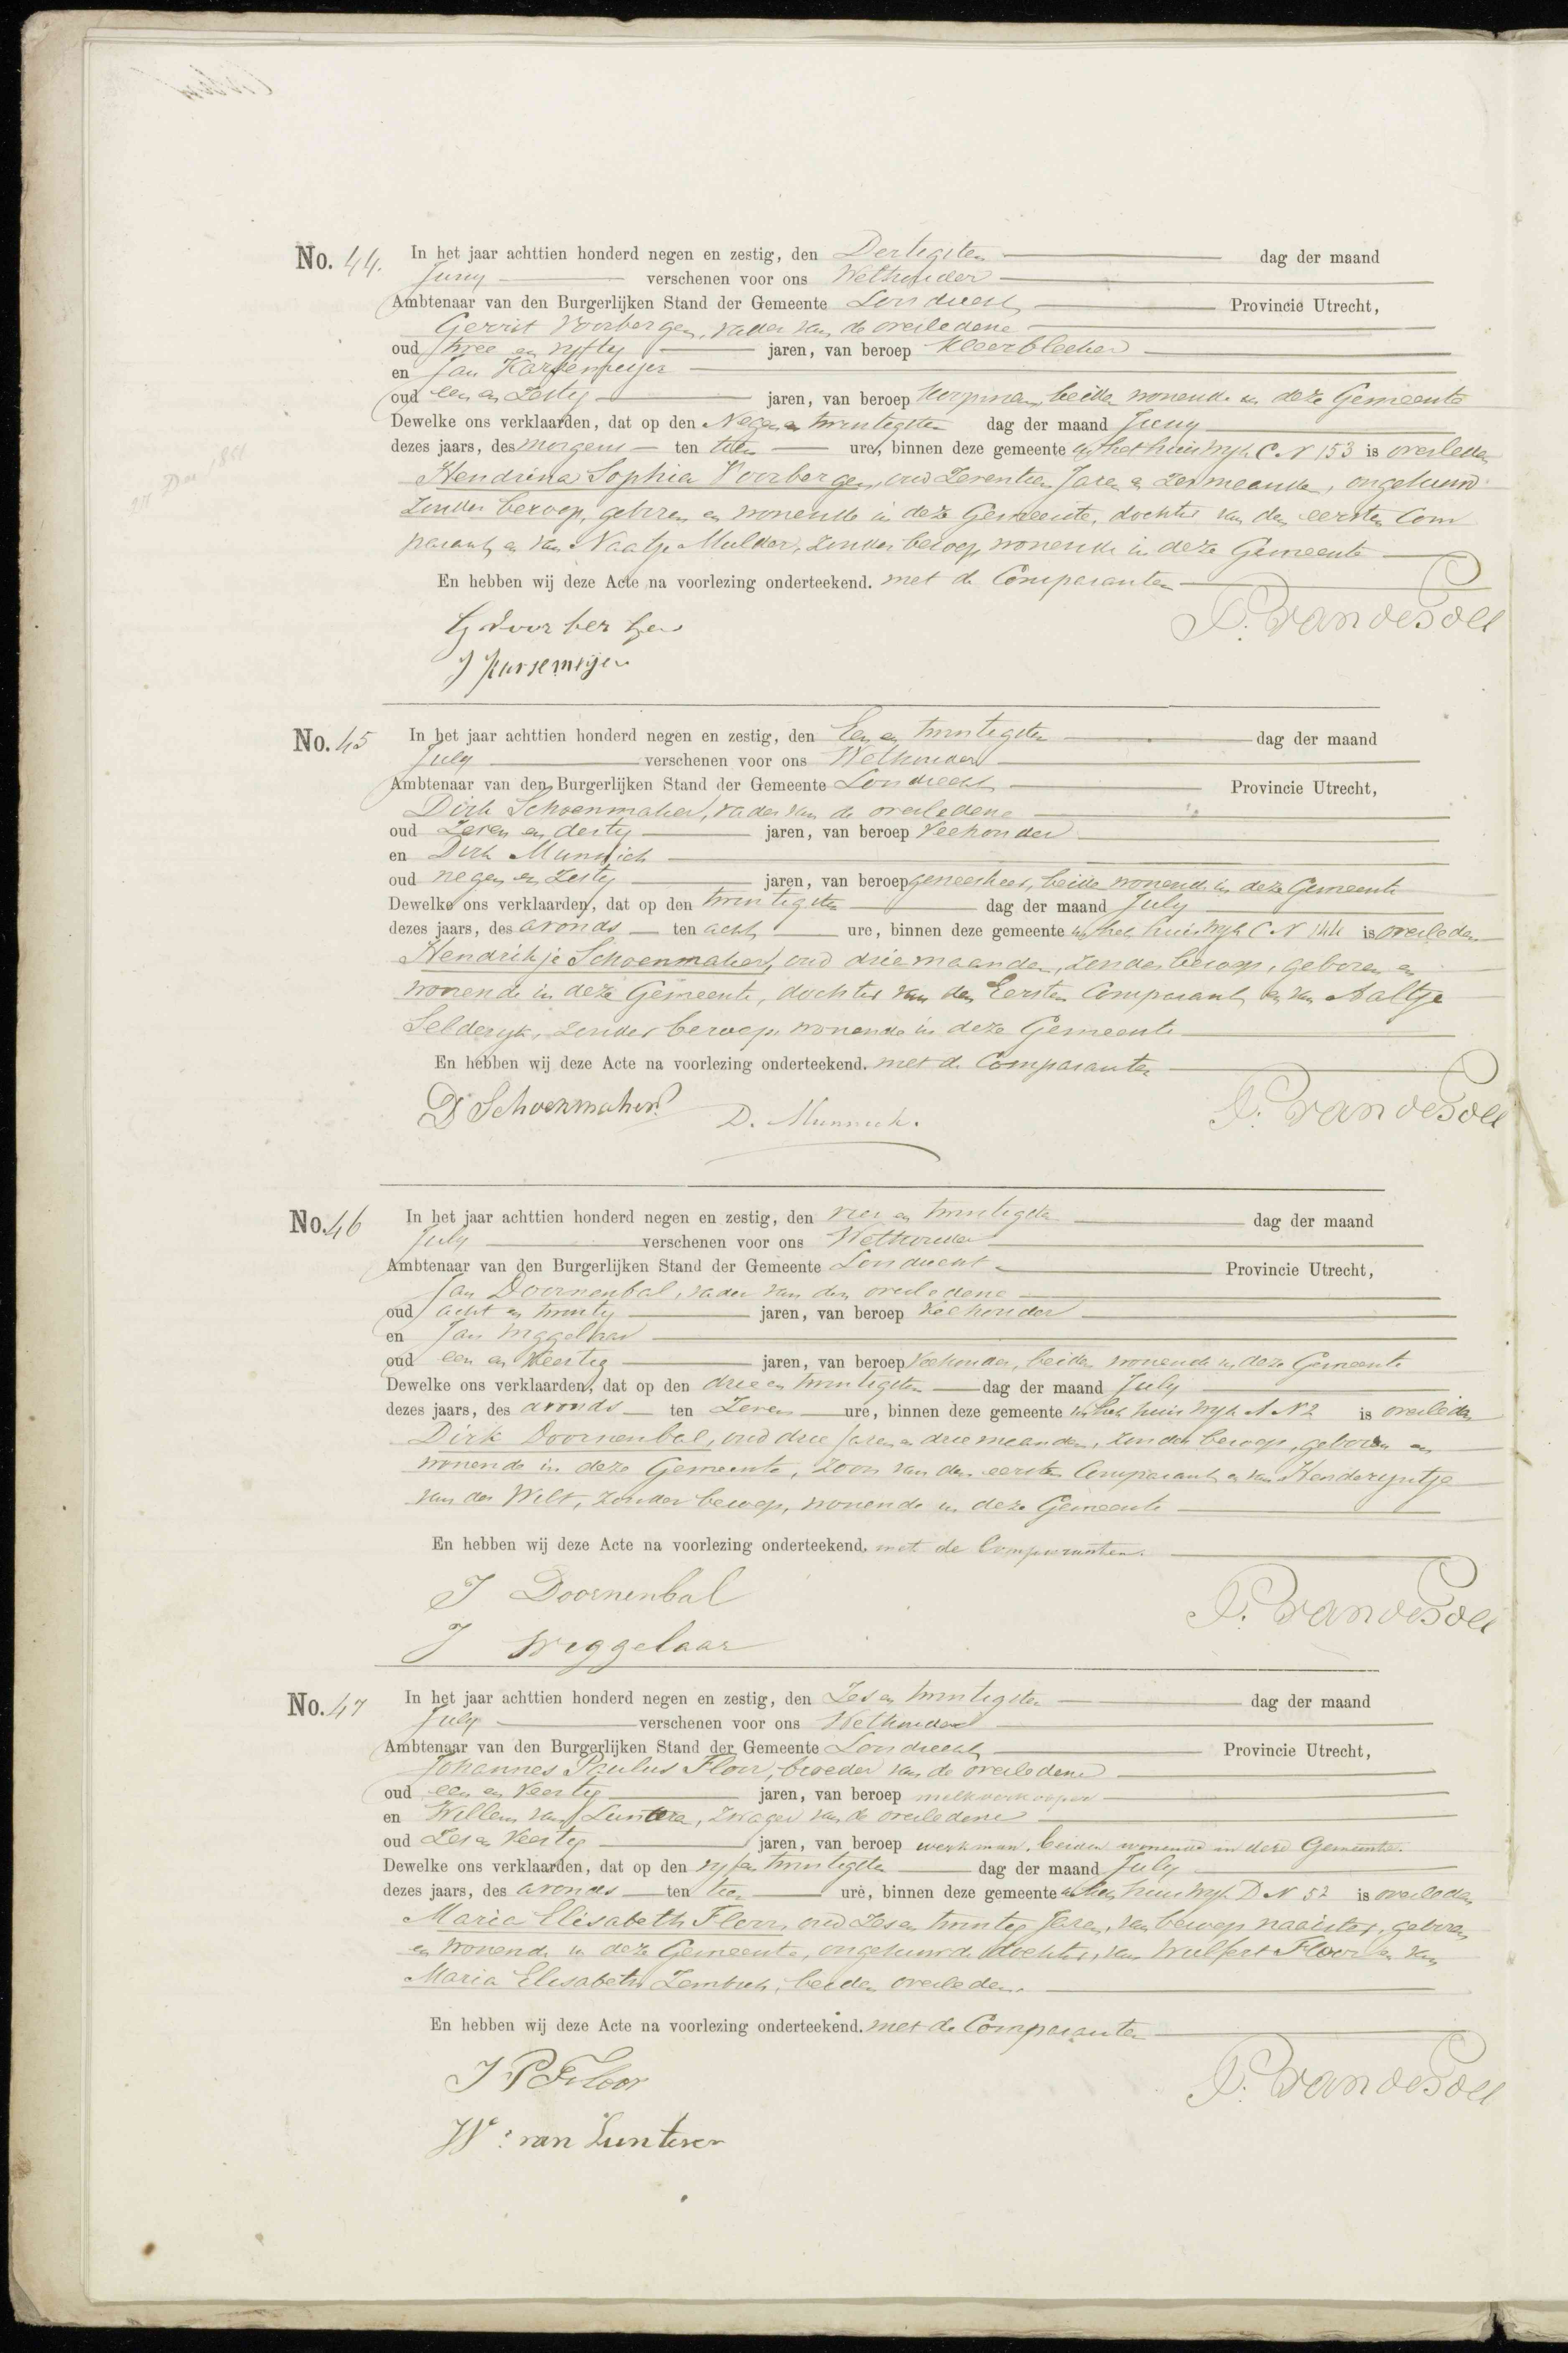 No. 44. In het jaar achttien honderd negen en zestig, den Dertigsten dag der maand
Juny verschenen voor ons Wethouder
Ambtenaar van den Burgerlijken Stand der Gemeente Loosdrecht Provincie Utrecht,
Gerrit Voorbergen, vader van de overledene
oud twee en vyftig jaren, van beroep Kleerbleeker
en Jan Karsemeijer
oud een en Zestig jaren, van beroep beiden wonende in deze Gemeente
Dewelke ons verklaarden, dat op den Negen en twintigsten dag der maand Juny
dezes jaars, des morgens ten tien ure, binnen deze gemeente in het huis Wyk C. N 153 is overleden
Hendrina Sophia Voorbergen, oud Zeventien Jaren en Zes maanden, ongehuwd
Zonder beroep, geboren en wonende in deze Gemeente, dochter van den eersten Com
parant, en van Naatje Mulder, Zonder beroep wonende in deze Gemeente
En hebben wij deze Acte na voorlezing onderteekend. met de Comparanten
G Voorbergen
J Karsemeijer
No. 45 In het jaar achttien honderd negen en zestig, den Een en twintigsten dag der maand
July verschenen voor ons Wethouder
Ambtenaar van den Burgerlijken Stand der Gemeente Loosdrecht Provincie Utrecht,
Dirk Schoenmaker, vader van de overledene
oud Zeven en dertig jaren, van beroep Veehouder
en Dirk Munnich
oud negen en Zestig jaren, van beroep geneesheer, beide wonende in deze Gemeente
Dewelke ons verklaarden, dat op den twintigsten dag der maand July
dezes jaars, des avonds ten acht ure, binnen deze gemeente in het huis Wyk C N 144 is overleden
Hendrikje Schoenmaker, oud drie maanden, Zonder beroep, geboren en
wonende in deze Gemeente, dochter van den Eersten Comparant, en van Aaltje
Selderyk, Zonder beroep wonende in deze Gemeente
En hebben wij deze Acte na voorlezing onderteekend. met de Comparanten
D Schoenmaker
D. Munnich.
No. 46 In het jaar achttien honderd negen en zestig, den vier en twintigsten dag der maand
July verschenen voor ons Wethouder
Ambtenaar van den Burgerlijken Stand der Gemeente Loosdrecht Provincie Utrecht,
Jan Doornenbal, vader van den overledene
oud acht en twintig jaren, van beroep Veehouder
en Jan Wiggelaar
oud een en Veertig jaren, van beroep Veehouder, beiden wonende in deze Gemeente
Dewelke ons verklaarden, dat op den drie en twintigsten dag der maand July
dezes jaars, des avonds ten Zeven ure, binnen deze gemeente in het huis Wyk A N 2 is overleden
Dirk Doornenbal, oud drie Jaren en drie maanden, Zonder beroep, geboren en
wonende in deze Gemeente, Zoon van den eersten Comparant, en van Henderyntje
van der Wilt, Zonder beroep, wonende in deze Gemeente
En hebben wij deze Acte na voorlezing onderteekend. met de Comparanten.
J Doornenbal
J Wiggelaar
No. 47 In het jaar achttien honderd negen en zestig, den Zes en twintigsten dag der maand
July verschenen voor ons Wethouder
Ambtenaar van den Burgerlijken Stand der Gemeente Loosdrecht Provincie Utrecht,
Johannes Paulus Floor, broeder van de overledene
oud een en Veertig jaren, van beroep melkverkooper
en Willem van Lunteren, Zwager van de overledene
oud Zes en Veertig jaren, van beroep werkman, beiden wonende in deze Gemeente.
Dewelke ons verklaarden, dat op den vyf en twintigsten dag der maand July
dezes jaars, des avonds ten tien ure, binnen deze gemeente in het huis Wyk D N 52 is overleden
Maria Elisabeth Floor, oud Zes en twintig Jaren, van beroep naaister, geboren
en wonende in deze Gemeente, ongehuwde dochter, van Wulfert Floor en van
Maria Elisabeth beiden overleden.
En hebben wij deze Acte na voorlezing onderteekend. met de Comparanten
J P Floor
W: van Lunteren